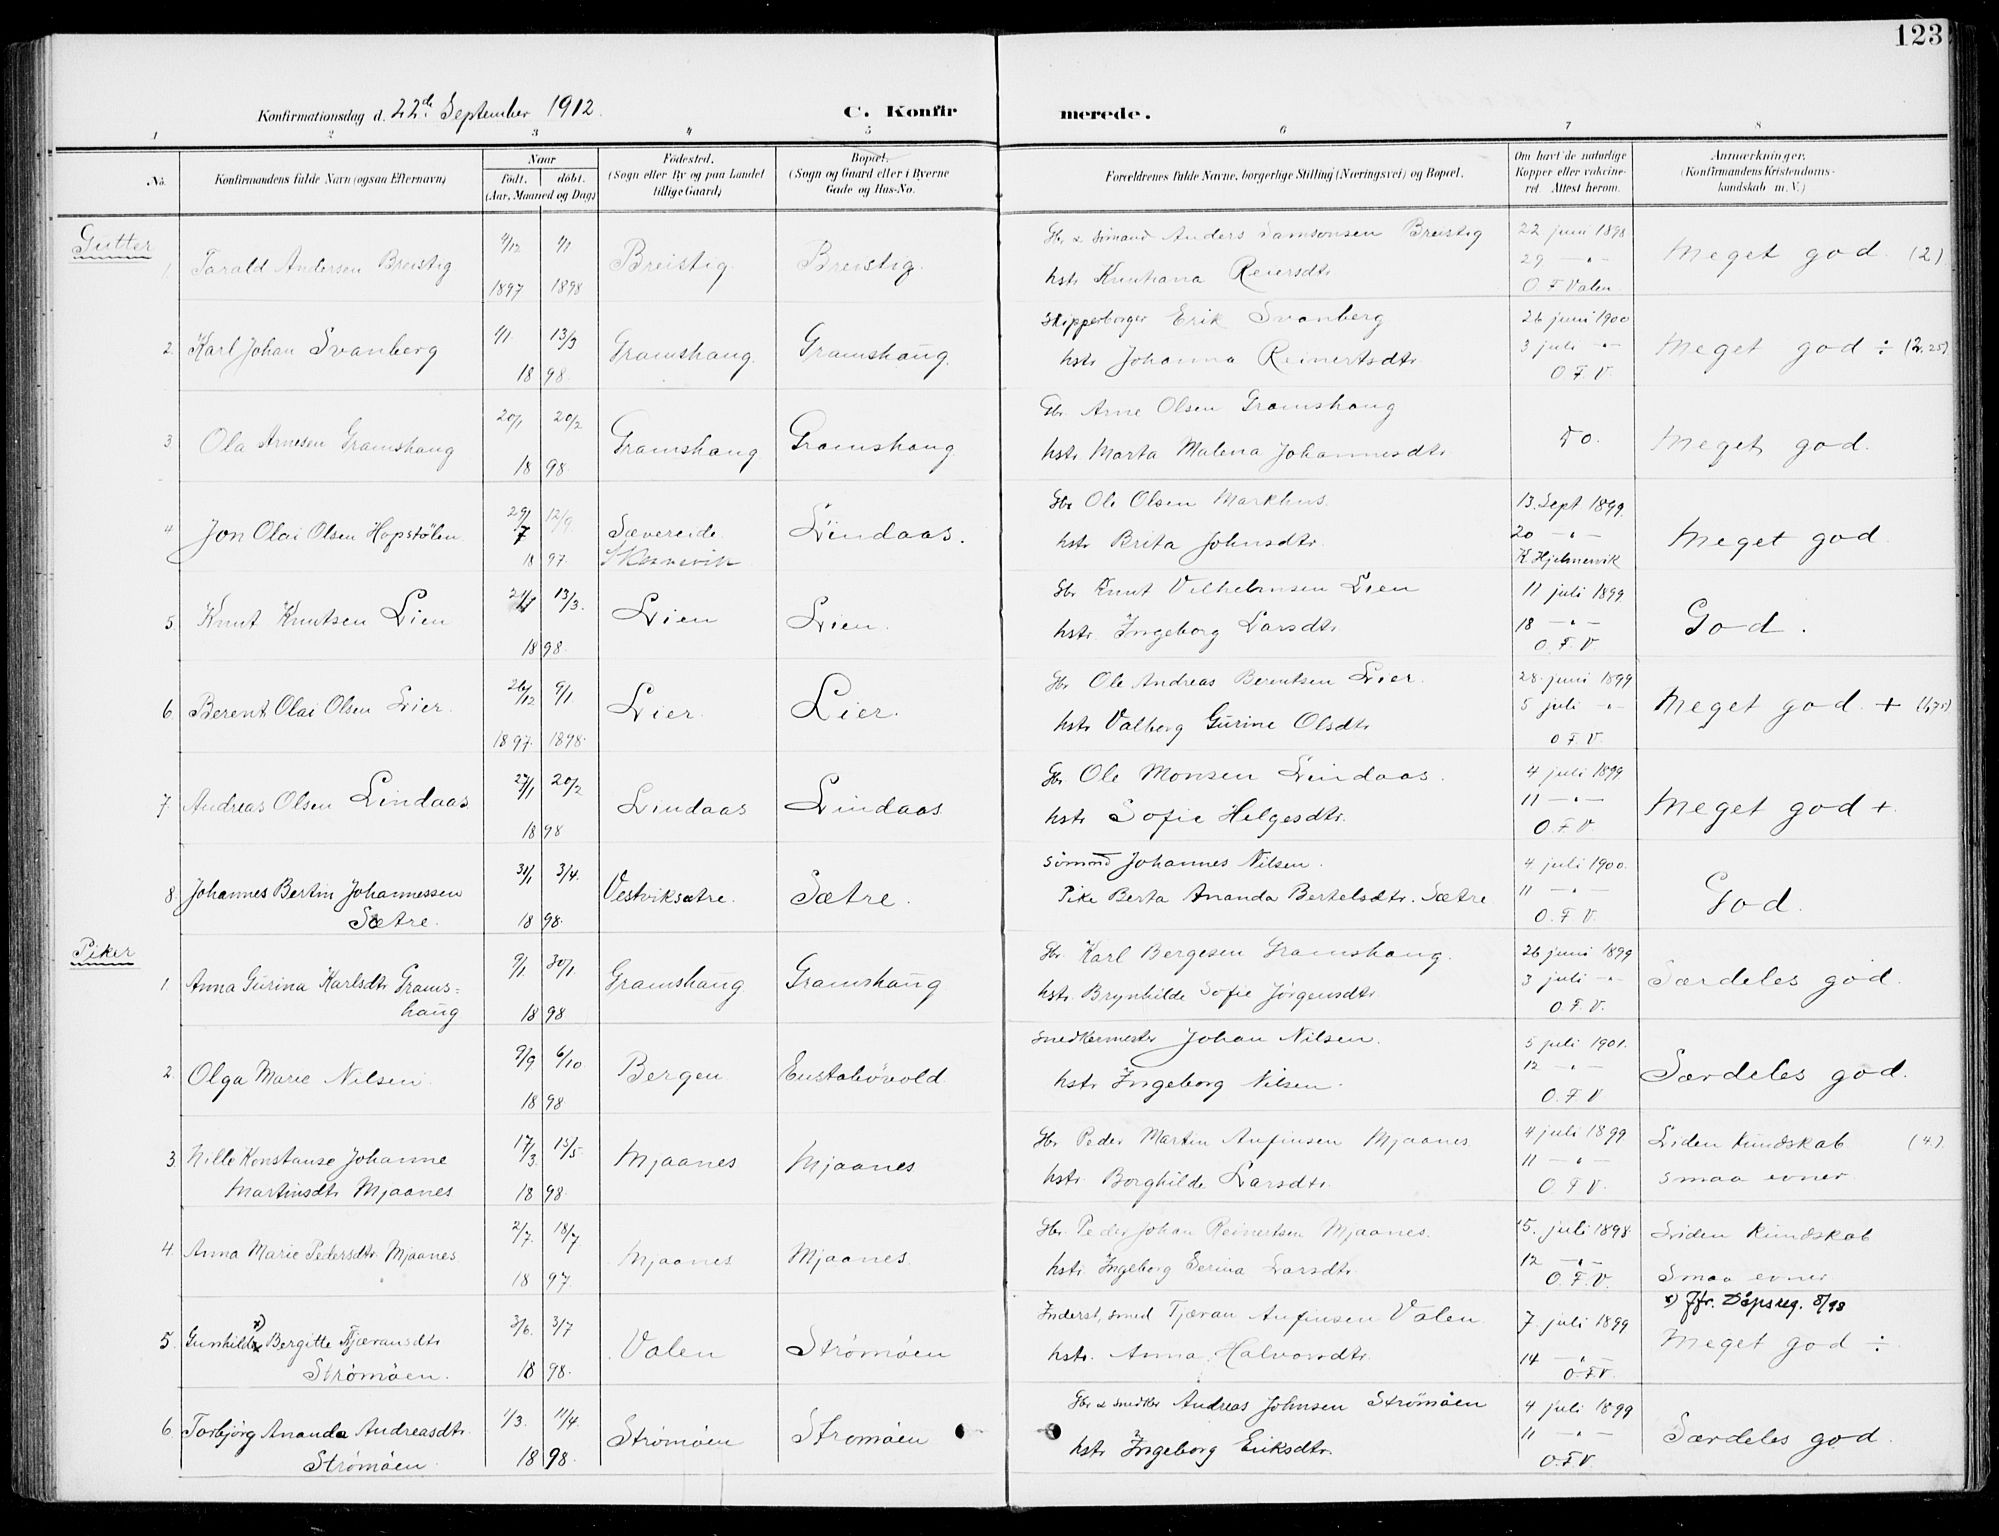 123
Konfirmationsdag d. 22de September 1912.
C. Konfirmerede.
1 2 3 4 5 6 7 8
No.
Konfirmandens fulde Navn (ogsaa Efternavn)
Naar
født. døbt.
(Aar, Maaned og Dag)
Fødested.
(Sogn eller By og paa Landet
tillige Gaard)
Bopæl.
(Sogn og Gaard eller i Byerne
Gade og Hus-No.
Forældrenes fulde Navne, borgerlige Stilling (Næringsvei) og Bopæl.
Om havt de naturlige
Kopper eller vakcine-
ret. Attest herom.
Anmærkninger.
(Konfirmandens Kristendoms-
kundskab m. V.)
Gutter
1. Tarald Andersen Breistig 4/12 1897 4/1 1898 Breistig. Breistig.
Gbr & sömand Anders Samsonsen Breistig
hstr Knutiana Reiersdtr
22 juni 1898
29 — " —
O F Valen
Meget god. (2)
2. Karl Johan Svanberg 4/1 13/3 1898. Gramshaug. Gramshaug.
Skipperborger Erik Svanberg
hstr Johanna Reinertsdtr.
26 juni 1900
3 juli — " —
O. F. V.
Meget god ÷ (2,25)
3. Ola Arnesen Gramshaug 20/1 20/2 1898 Gramshaug Gramshaug
Gbr. Arne Olsen Gramshaug
hstr Marta Malena Johannesdtr
Do.
Meget god.
4 Jon Olai Olsen Hopstölen 29/7 12/9. 1897. Sævereide Skonevik Lindaas.
Gbr Ole Olsen Markhus.
hstr Brita Johnsdtr.
13. Sept 1899.
20 — " —
K. Hjelmervik
Meget god
5. Knut Knutsen Lien 21/1 13/3. 1898. Lien Lien.
Gbr Knut Vilhelmsen Lien
hstr Ingeborg Larsdtr.
11 juli 1899
18 — " —
O. F. V.
God.
6. Berent Olai Olsen Lier. 26/12 1897. 9/1. 1898. Lier. Lier.
Gbr Ole Andreas Berentsen Lier.
hstr Valborg Gurine Olsdtr
28. juni 1899
5 juli — " —
O. F. V.
Meget god. + (1,75)
7. Andreas Olsen Lindaas 27/1 20/2 1898 Lindaas Lindaas
Gbr. Ole Monsen Lindaas.
hstr Sofie Helgesdtr.
4 juli 1899
11 — " —
O. F. V.
Meget god +.
8 Johannes Bertin Johannessen
Sætre. 31/1 3/4. 1898. Vestviksætre. Sætre.
sömnd Johannes Nilsen.
Pike Berta Ananda Bertelsdtr. Sætre
4 juli 1900.
11 — " —
O. F. V.
God.
Piker
1. Anna Gurina Karlsdtr Grams-
haug 9/1 30/1. 1898 Gramshaug Gramshaug
Gbr. Karl Bergesen Gramshaug.
hstr. Brynhilde Sofie Jörgensdtr.
26 juni 1899
3 juli — " —
O. F. V.
Særdeles god.
2 Olga Marie Nilsen 9/9 6/10. 1898 Bergen Eustabövold
Snedkermester Johan Nilsen.
hstr Ingeborg Nilsen.
5 juli 1901.
12 — " —
O. F. V
Særdeles god.
3 Nille Konstanse Johanne
Martinsdtr Mjaanes 17/3. 15/5. 1898. Mjaanes Mjaanes
Gbr Peder Martin Anfinsen Mjaanes
hstr. Borghilde Larsdtr.
4 juli 1899
11 — " —
O. F V.
Liden kundskab (4.)
smaa evner.
4. Anna Marie Pedersdtr. Mjaanes 2/7. 18/7 1897. Mjaanes Mjaanes.
Gbr. Peder Johan Reinertsen Mjaanes.
hstr. Ingeborg Serina Larsdtr.
5. juli 1898
12 — " —
O. F. V.
Liden kundskab
Smaa evner
x) Jfr. Døpsreg. 8/98
5. Gunhild x) Bergitte Tjæransdtr
Strømøen. 3/6. 3/7 1898. Valen Strømöen
Inderst, smed Tjæran Anfinsen Valen
hstr. Anna Halvorsdtr.
7. juli 1899
14 — " —
O. F. V.
Meget god ÷
6 Torbjörg Ananda Andreasdtr.
Strømöen. 1/3. 11/4. 1898. Strømöen Strømöen
Gbr & snedker Andreas Johnsen Strømöen
hstr Ingeborg Eriksdtr.
4 juli 1899
11 — " —
O. F. V.
Særdeles god.